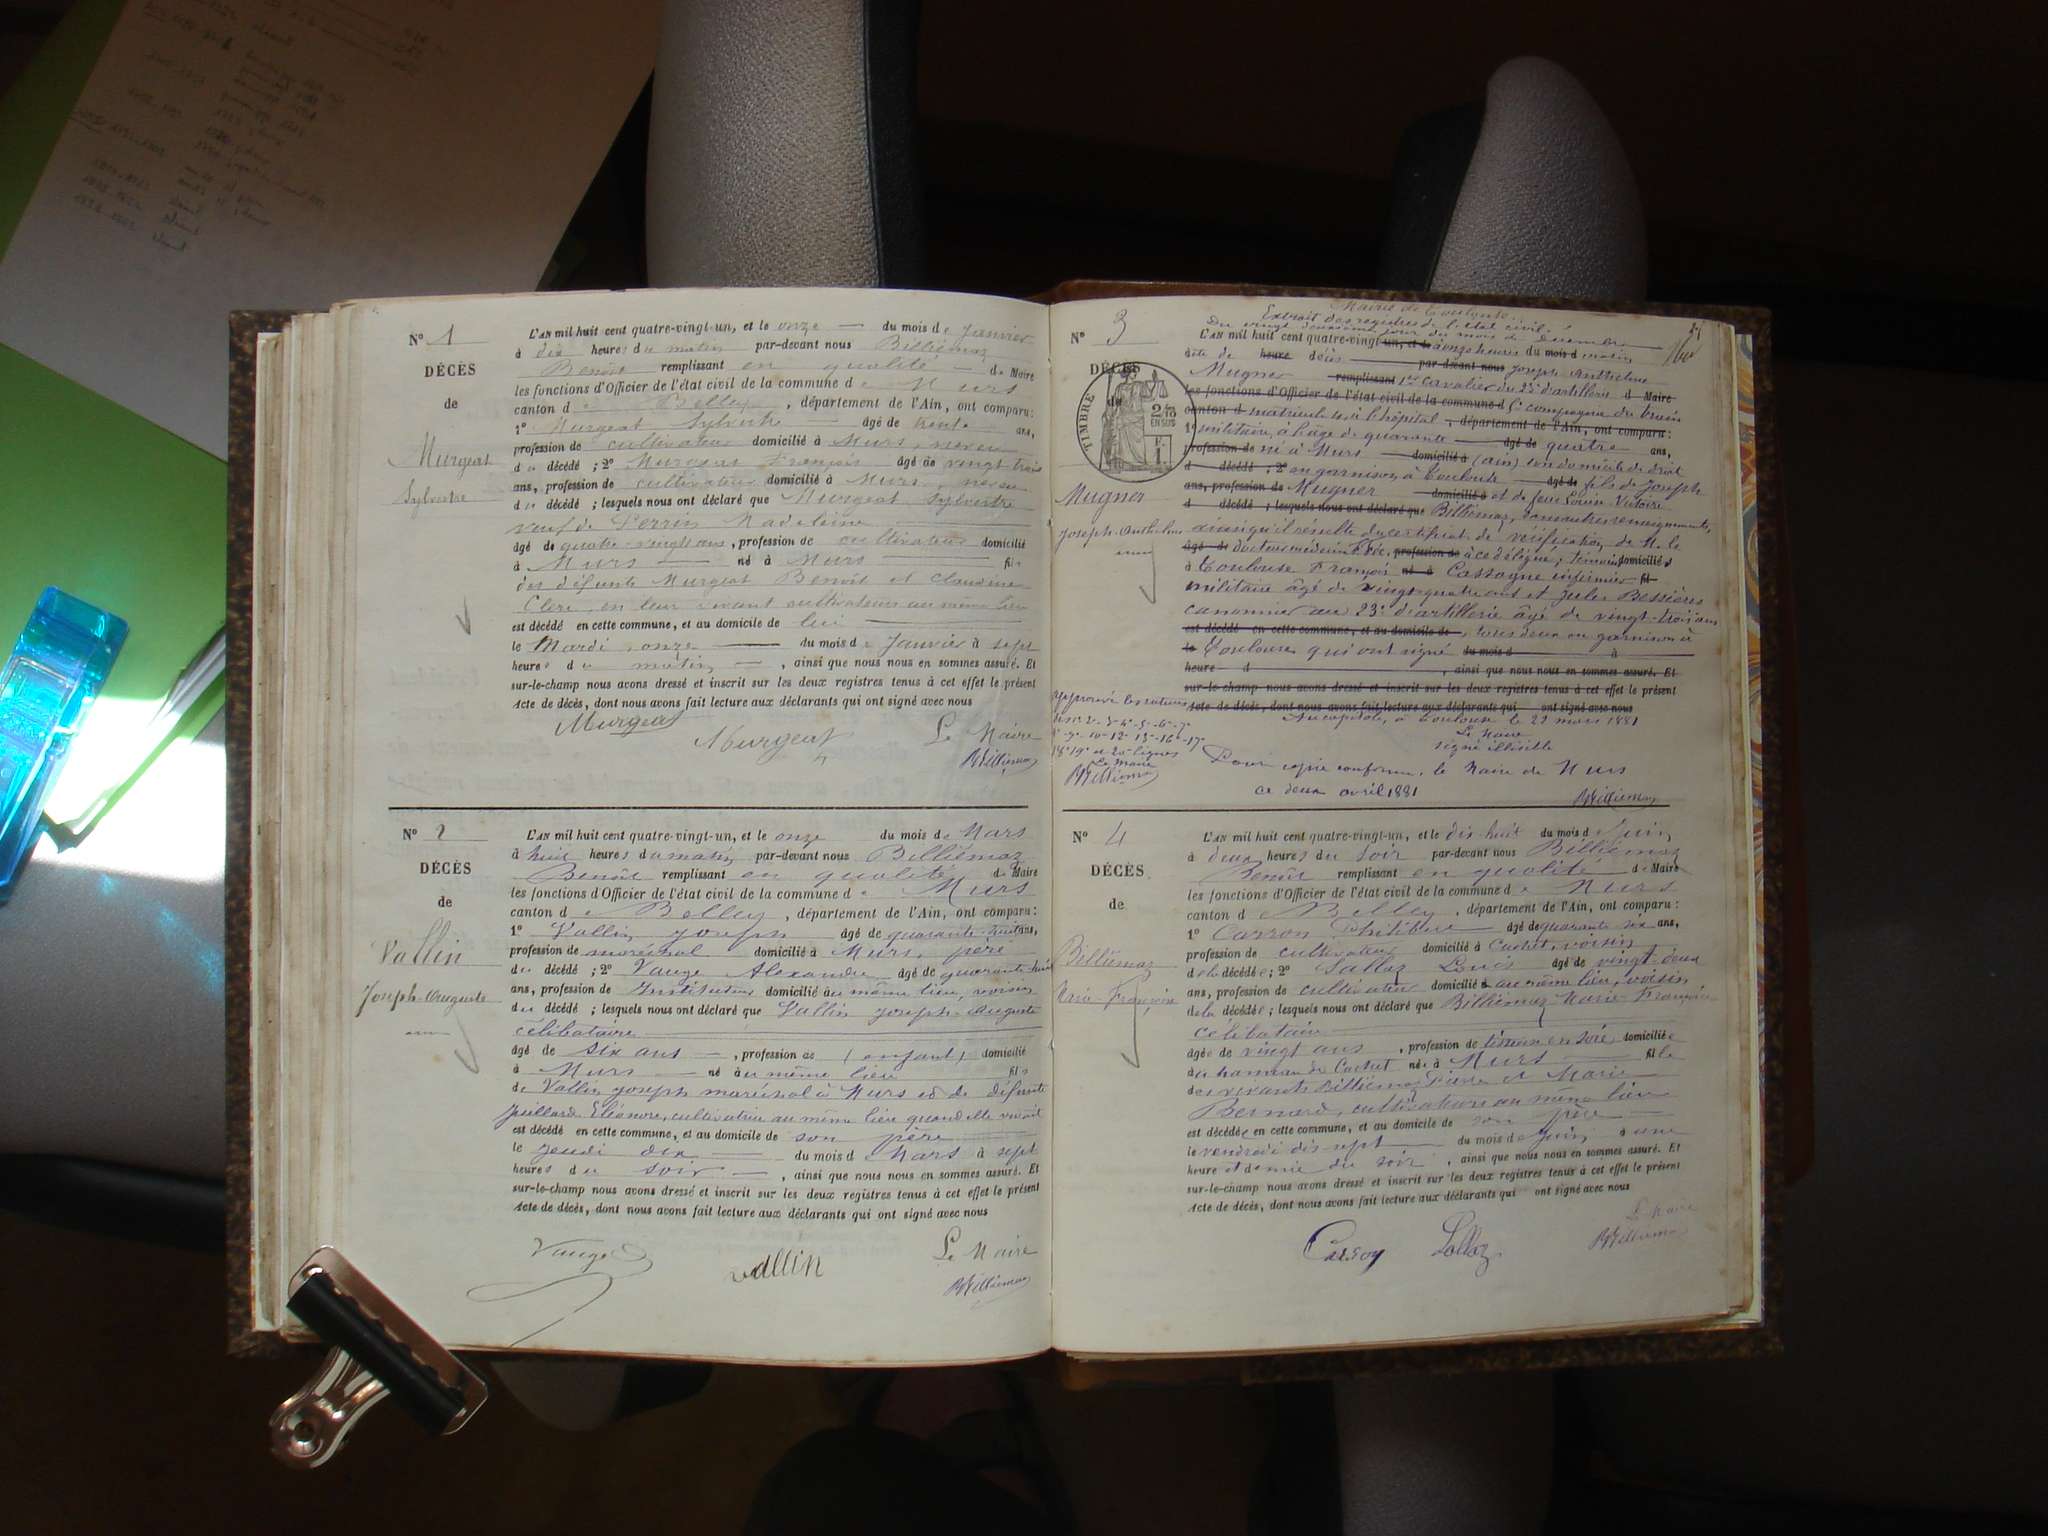 N° 1
DÉCÈS
de
Murgeat
Sylvestre
L'AN mil huit cent quatre-vingt-un, et le onze du mois de Janvier
à dix heures du matin par-devant nous Billiémaz
Benoît remplissant en qualité de Maire
les fonctions d'Officier de l'état civil de la commune de Murs
canton de Belley, département de l'Ain, ont comparu:
1° Murgeat Sylvestre âgé de trente ans,
profession de cultivateur domicilié à Murs neveu
du décédé; 2° Murgeat François âgé de vingt trois
ans, profession de cultivateur domicilié à Murs, neveu
du décédé; lesquels nous ont déclaré que Murgeat Sylvestre
veuf de Perrin Madeleine
âgé de quatre-vingts ans, profession de cultivateur domicilié
à Murs né à Murs fils
des défunts Murgeat Benoît et Claudine
Clerc, en leur vivant cultivateurs au même lieu
est décédé en cette commune, et au domicile de lui
le Mardi onze du mois de Janvier à sept
heures du matin, ainsi que nous nous en sommes assuré. Et
sur-le-champ nous avons dressé et inscrit sur les deux registres tenus à cet effet le présent
Acte de décès, dont nous avons fait lecture aux déclarants qui ont signé avec nous
Murgeat Murgeat Le Maire
Billiémaz
N° 2
DÉCÈS
de
Vallin
Joseph-Auguste
L'AN mil huit cent quatre-vingt-un, et le onze du mois de Mars
à huit heures du matin par-devant nous Billiémaz
Benoît remplissant en qualité de Maire
les fonctions d'Officier de l'état civil de la commune de Murs
canton de Belley, département de l'Ain, ont comparu:
1° Vallin Joseph âgé de quarante-huit ans,
profession de maréchal domicilié à Murs, père
du décédé; 2° Vauge Alexandre âgé de quarante-huit
ans, profession de Instituteur domicilié au même lieu, voisin
du décédé; lesquels nous ont déclaré que Vallin Joseph-Auguste
célibataire
âgé de six ans, profession de (enfant) domicilié
à Murs né au même lieu fils
de Vallin Joseph maréchal à Murs et de défunte
Juillard Eléonore, cultivatrice au même lieu quand elle vivait
est décédé en cette commune, et au domicile de son père
le jeudi dix du mois de Mars à sept
heures du soir, ainsi que nous nous en sommes assuré. Et
sur-le-champ nous avons dressé et inscrit sur les deux registres tenus à cet effet le présent
Acte de décès, dont nous avons fait lecture aux déclarants qui ont signé avec nous
Vauge vallin Le Maire
Billiémaz
Mairie de Toulouse
Extrait des registres de l'état civil.
Du vingt deuxième jour du mois de Décembre
N° 3
DÉCÈS
de
TIMBRE
2/10 EN SUS
F. 1
Mugner
Joseph-Anthelme
L'AN mil huit cent quatre-vingt un, et le à onze heures du mois d matin
acte de heure décès par-devant nous Joseph Anthelme
Mugner remplissant 1er cavalier du 23e d'artillerie d Maire
les fonctions d'Officier de l'état civil de la commune d Cie compagnie du train
canton d matricule à l'hôpital, département de l'Ain, ont comparu:
1° militaire, à l'âge de quarante âgé de quatre ans,
profession de né à Murs domicilié à (ain) son domicile de droit
d décédé; 2° en garnison à Toulouse âgé de fils de Joseph
ans, profession de Mugner domicilié à et de feue Louise Victoire
d décédé; lesquels nous ont déclaré que Billiémaz, renseignements,
ainsi qu'il résulte du certificat de vérification de M. le
âgé de docteur médecin profession de à ce délégué; témoins domicilié
à Toulouse François né à Cassagne infirmier fil
militaire âgé de vingt-quatre ans et Jules Bessières
canonnier au 23e d'artillerie âgé de vingt-trois ans
est décédé en cette commune, et au domicile de, tous deux en garnison à
le Toulouse qui ont signé du mois d à
heure d, ainsi que nous nous en sommes assuré. Et
sur-le-champ nous avons dressé et inscrit sur les deux registres tenus à cet effet le présent
Acte de décès, dont nous avons fait lecture aux déclarants qui ont signé avec nous
Au capitole, à Toulouse le 29 mars 1881
Le Maire
signé illisible
Pour copie conforme, le Maire de Murs
ce deux avril 1881
Billiémaz
Approuvé les ratures
Le Maire
Billiémaz
N° 4
DÉCÈS
de
Billiémaz
Marie-Françoise
L'AN mil huit cent quatre-vingt-un, et le dix-huit du mois de Juin
à deux heures du soir par-devant nous Billiémaz
Benoît remplissant en qualité de Maire
les fonctions d'Officier de l'état civil de la commune de Murs
canton de Belley, département de l'Ain, ont comparu:
1° Carron Philibert âgé de quarante six ans,
profession de cultivateur domicilié à Cochet, voisin
de la décédée; 2° Lallaz Louis âgé de vingt-deux
ans, profession de cultivateur domicilié au même lieu, voisin
de la décédée; lesquels nous ont déclaré que Billiémaz Marie-Françoise
célibataire
âgée de vingt ans, profession de tisseuse en soie domiciliée
au hameau de Cochet née à Murs fille
des vivants Billiémaz Pierre et Marie
Bernard, cultivateurs au même lieu
est décédée en cette commune, et au domicile de son père
le vendredi dix sept du mois de Juin à une
heure et demie du soir, ainsi que nous nous en sommes assuré. Et
sur-le-champ nous avons dressé et inscrit sur les deux registres tenus à cet effet le présent
Acte de décès, dont nous avons fait lecture aux déclarants qui ont signé avec nous
Carron Lallaz Le Maire
Billiémaz